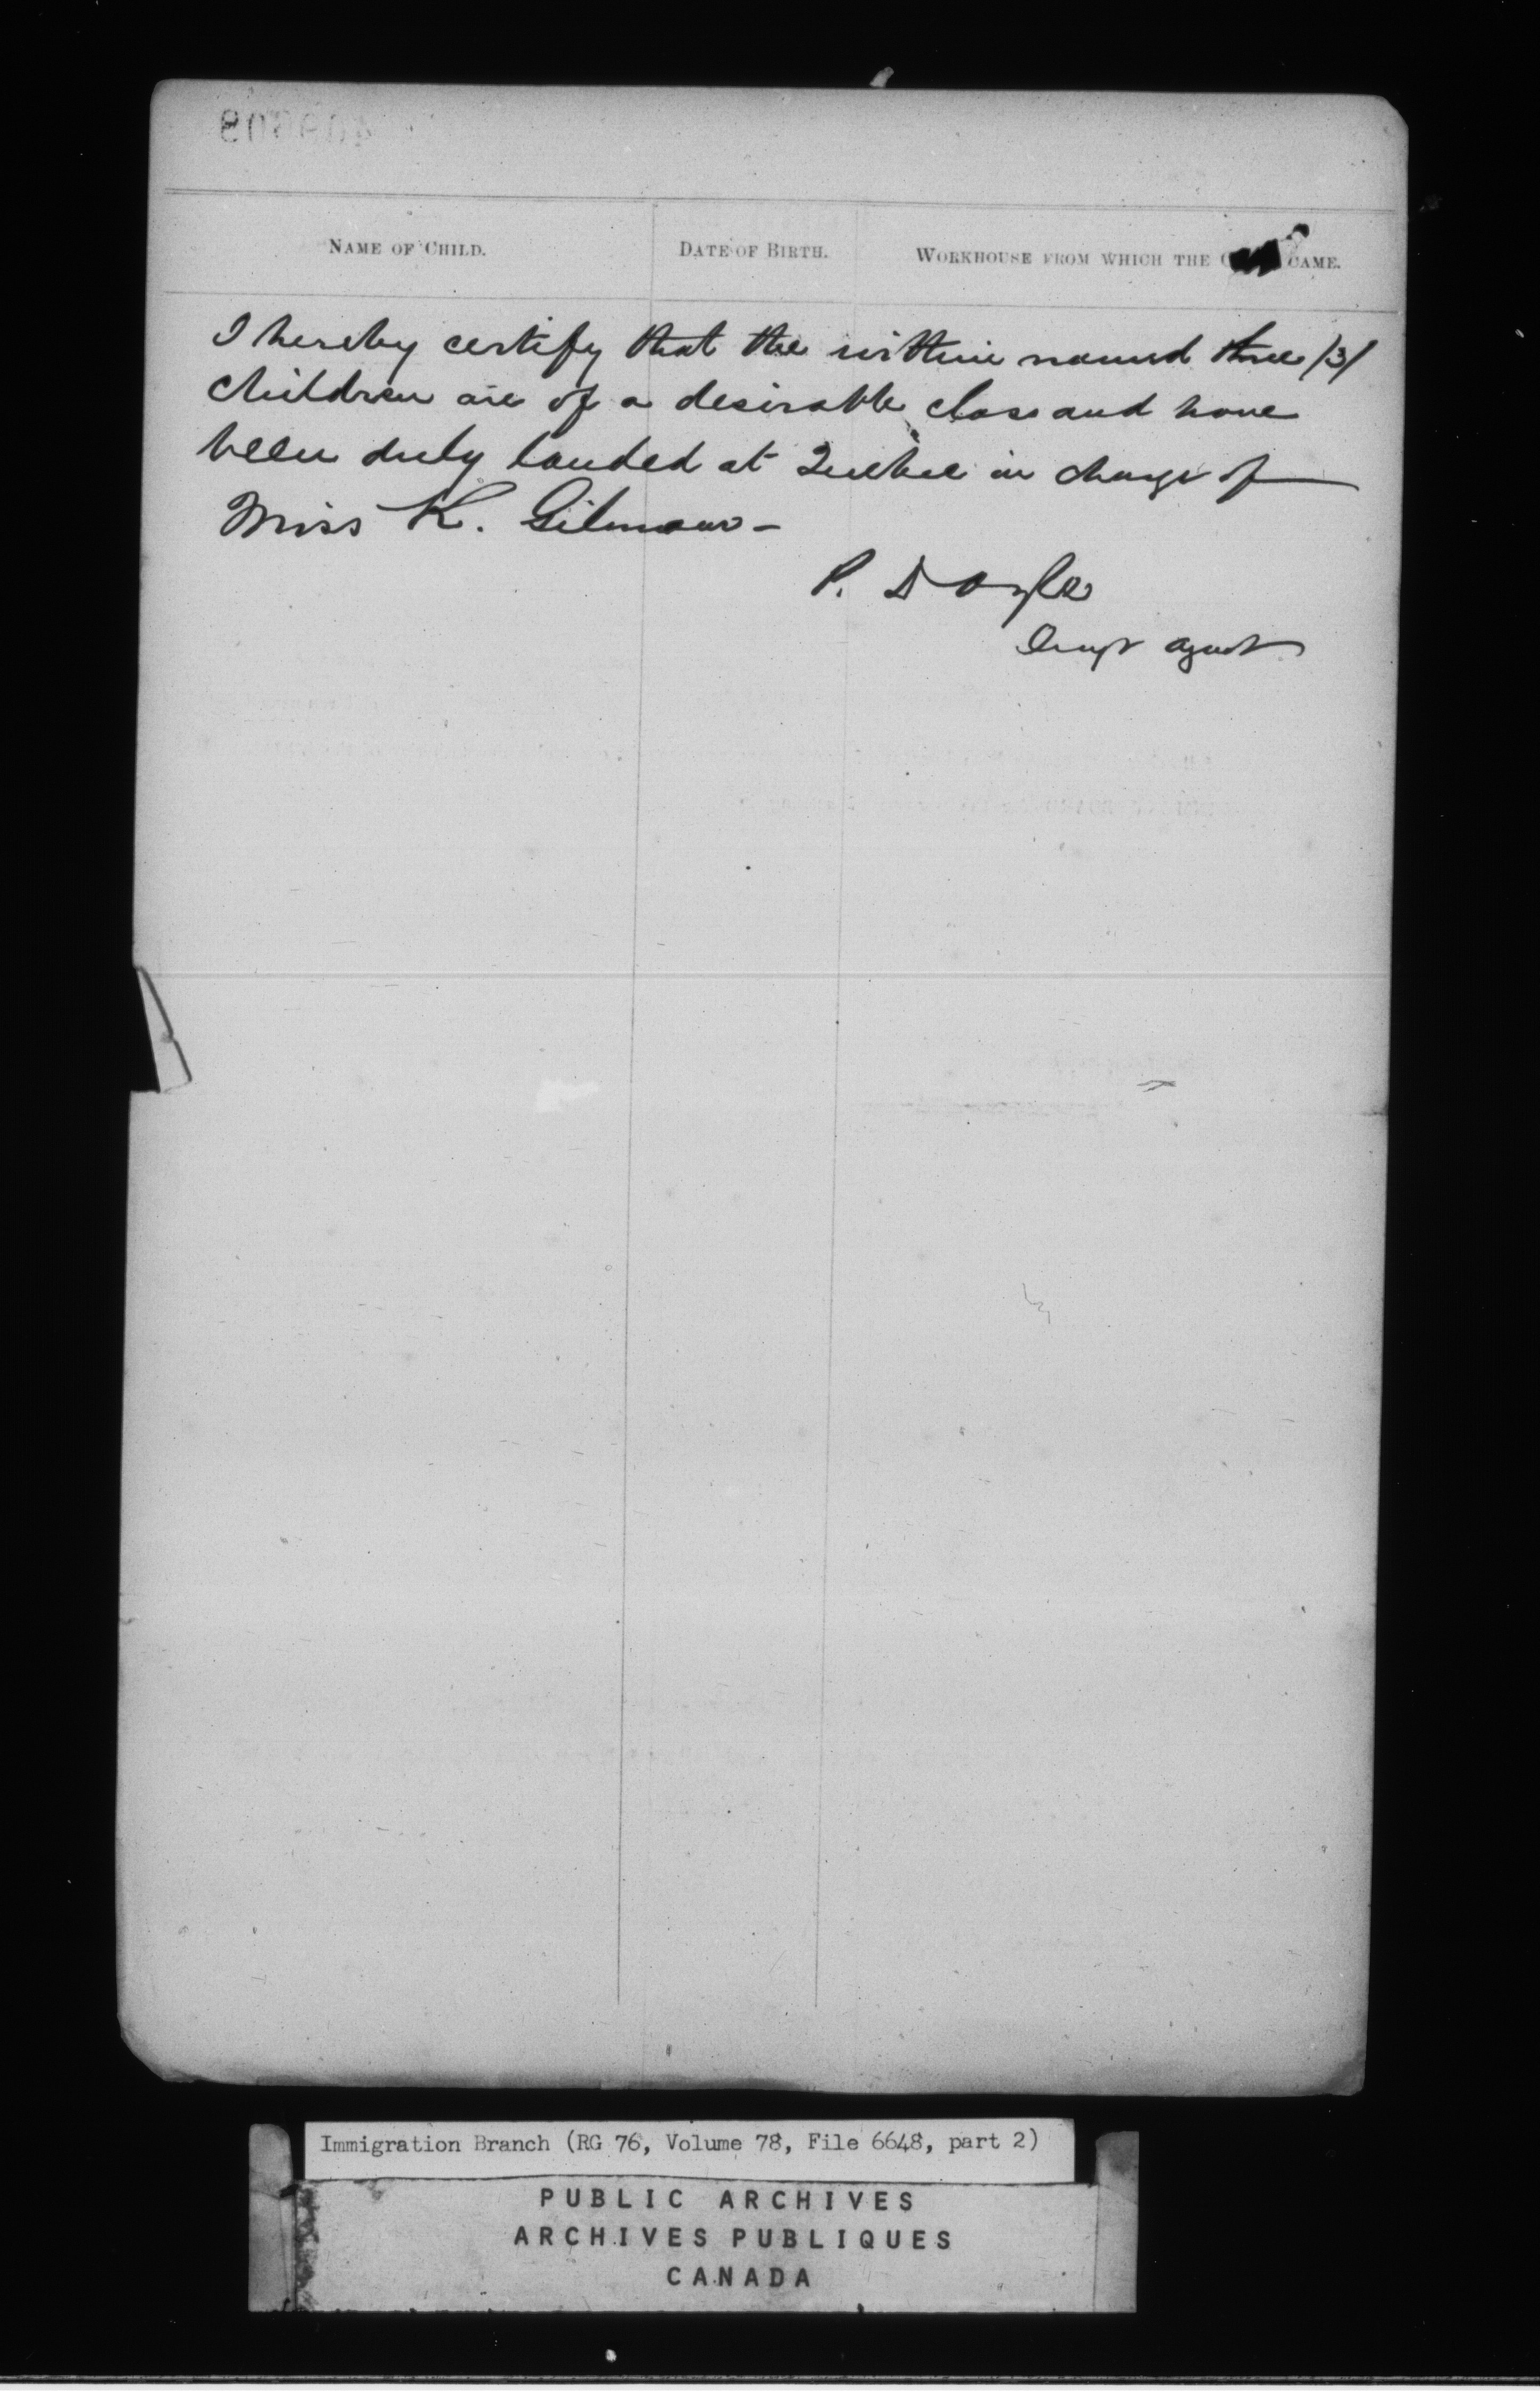 NAME OF CHILD. DATE OF BIRTH. WORKHOUSE FROM WHICH THE CAME.
I hereby certify that the within named three /3/
children are of a desirable class and have
been duly landed at Quebec in charge of
Miss K. Gilmour -
P. Doyle
Immgt Agent
Immigration Branch (RG 76, Volume 78, File 6648, part 2)
PUBLIC ARCHIVES
ARCHIVES PUBLIQUES
CANADA